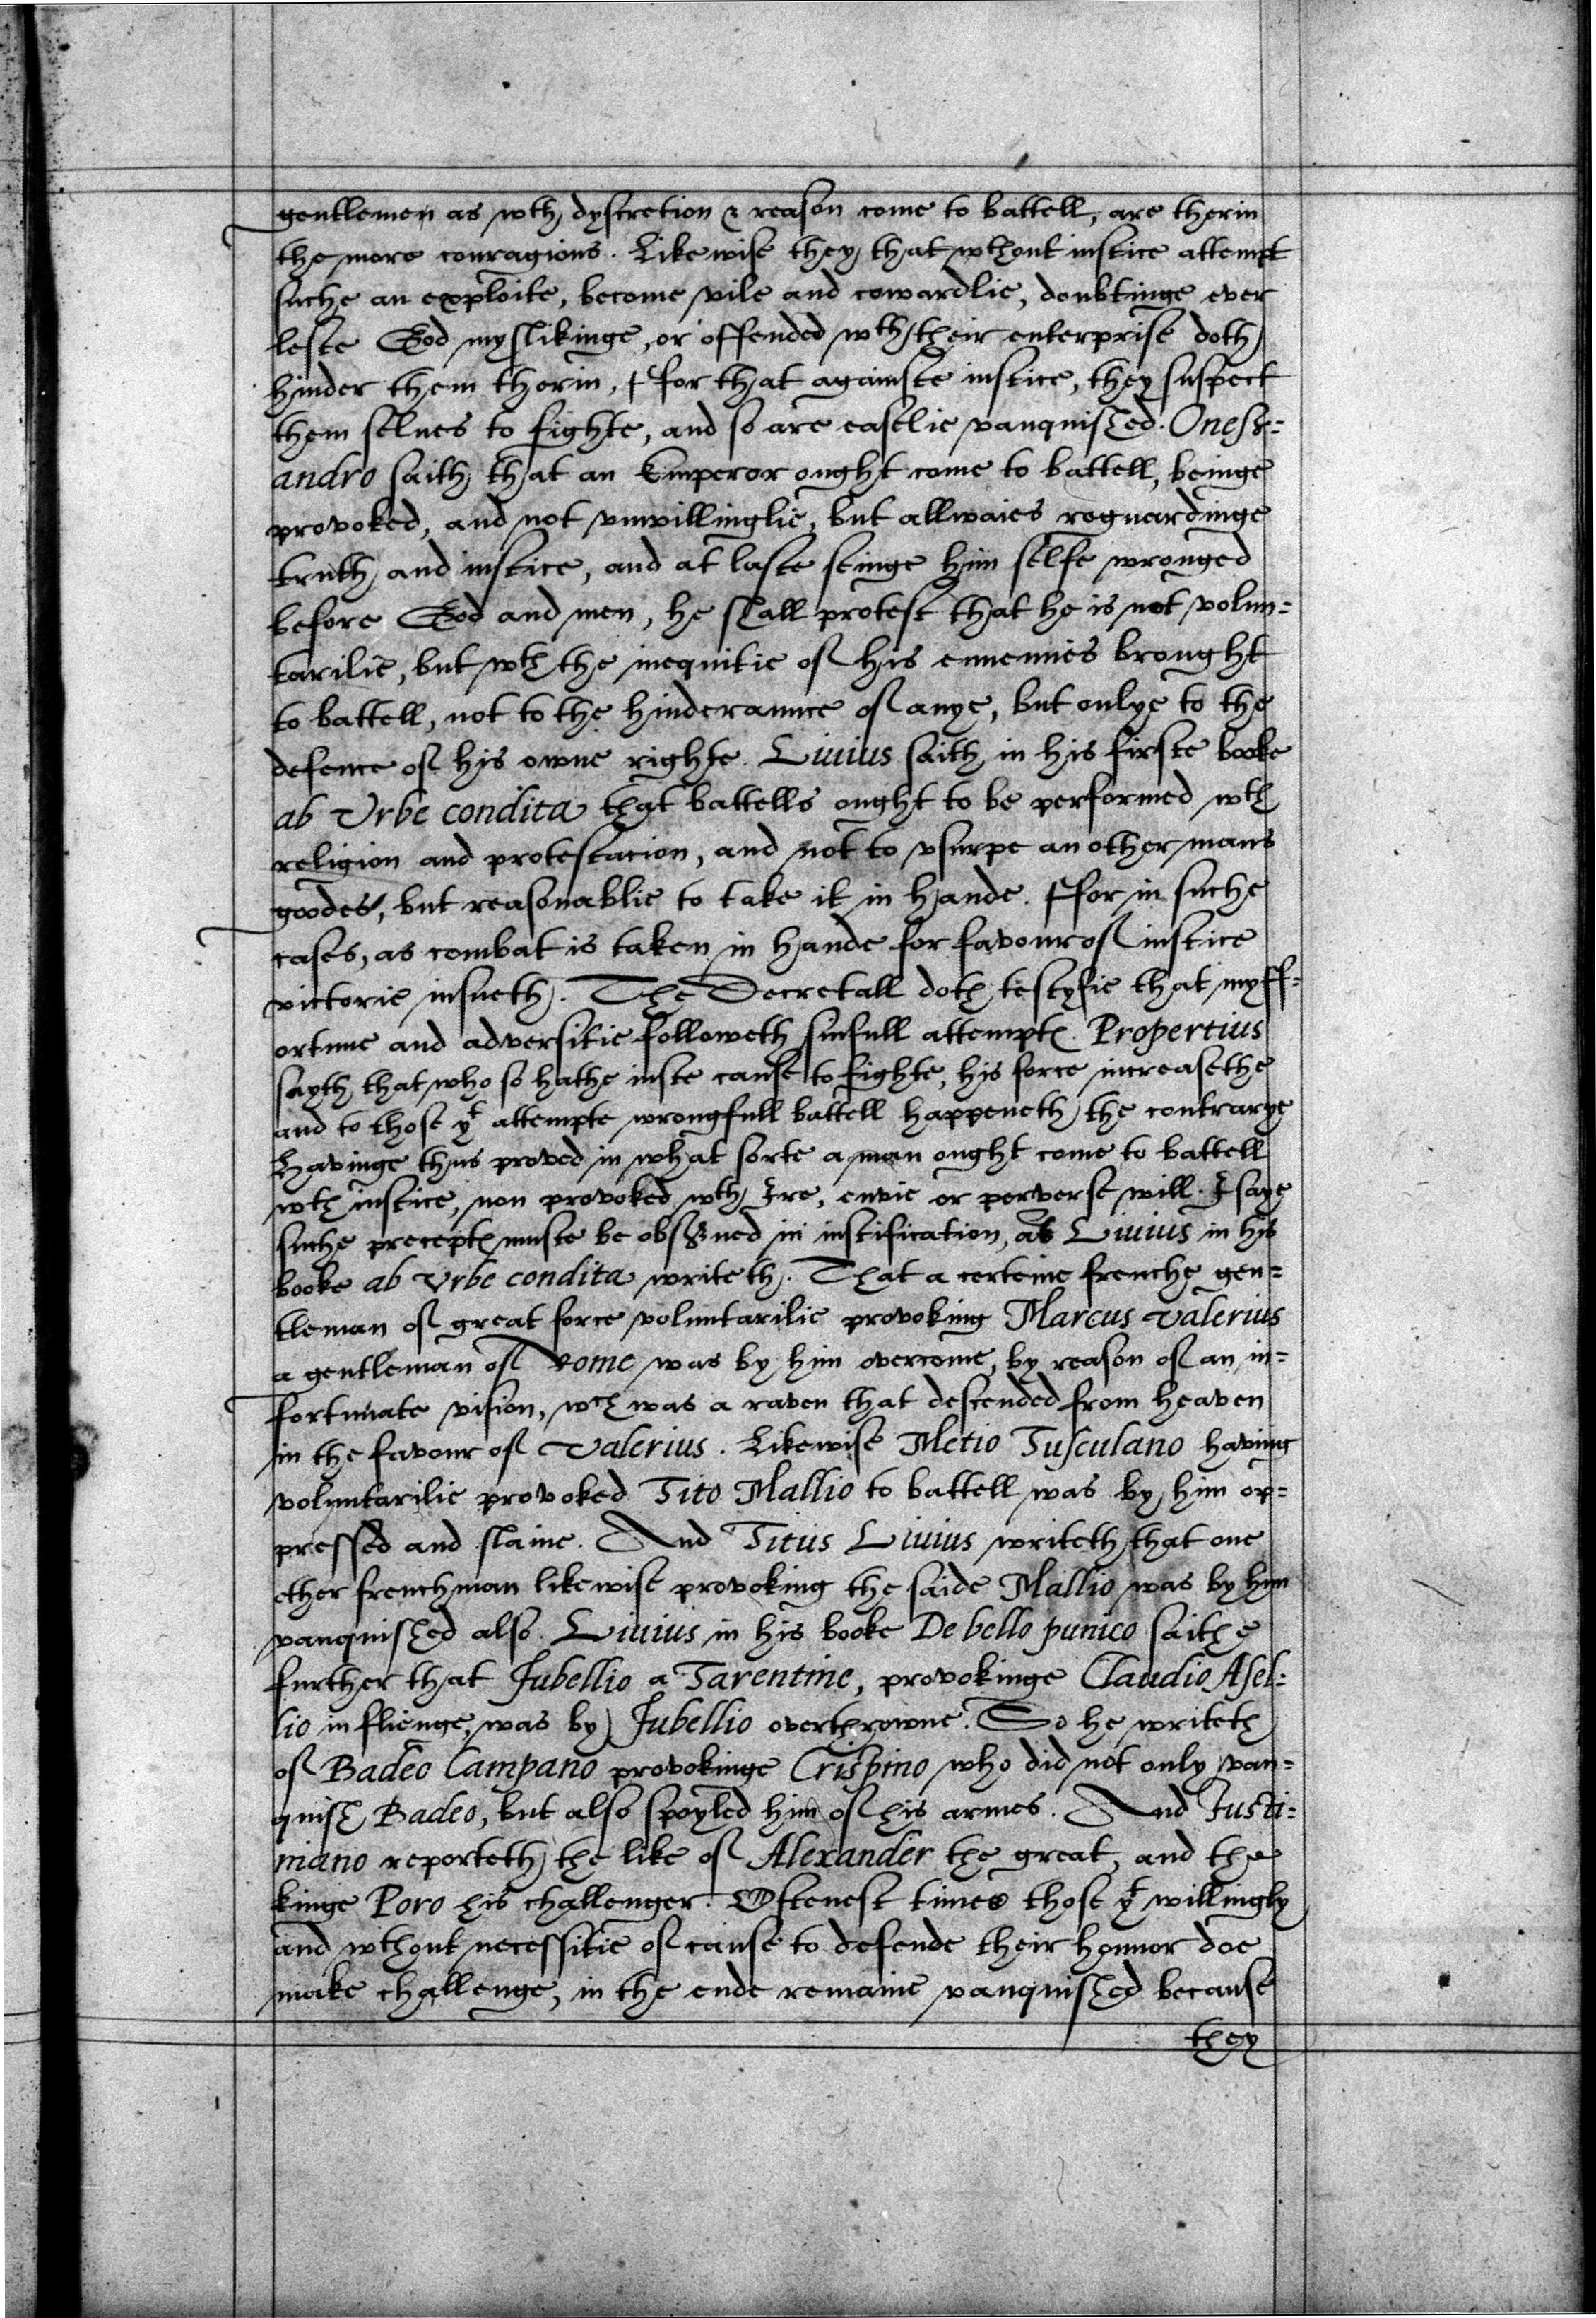 gentlemen as wth dyscretion & reason come to battell, are therin
the more couragious. Likewise they that wthout iustice attempt
suche an exploite, become vile and cowardlie, doubtinge ever
leste God myslikinge, or offended wth their enterprise doth
hinder them therin, ffor that againste iustice, they suspect
them selues to fighte, and so are easelie vanquished. Oness=
andro saith that an Emperor ought come to battell, beinge
provoked, and not vnwillinglie, but allwaies reguardinge
truth and iustice, and at laste seinge him selfe wronged
before God and men, he shall protest that he is not volun=
tarilie, but wth the inequitie of his ennemies brought
to battell, not to the hinderaunce of anye, but onlye to the
defence of his owne righte. Liuius saith in his firste booke
ab Vrbe condita that battells ought to be performed wth
religion and protestacion, and not to vsurpe an other mans
goodes, but reasonablie to take it in hande. ffor in suche
cases, as combat is taken in hande for favour of iustice
victorie insueth. The Decretall doth testyfie that mysf=
ortune and adversitie followeth sinfull attemptes. Propertius
sayth that who so hathe iuste cause to fighte, his force increasethe
and to those yt attempte wrongfull battell happeneth the contrarye
Havinge thus proved in what sorte a man ought come to battell
wth iustice, non provoked wth Ire, envie or perverse will. I saye
suche preceptes muste be obserued in iustification, as Liuius in his
booke ab Vrbe condita writeth. That a certeine frenche gen=
tleman of great force voluntarilie provoking Marcus Valerius
a gentleman of Rome was by him overcome, by reason of an in=
fortunate vision, wch was a raven that descended from heaven
in the favour of Valerius. Likewise Metio Tusculano having
voluntarilie provoked Tito Mallio to battell was by him op=
pressed and slaine. And Titus Liuius writeth that one
other frenchman likewise provoking the saide Mallio was by him
vanquished also. Liuius in his booke De bello punico saithe
further that Jubellio a Tarentine, provokinge Claudio Asel=
lio in flienge, was by Jubellio overthrowne. So he writeth
of Badeo Campano provokinge Crispino who did not only van=
quish Badeo, but also spoyled him of his armes. And Justi=
niano reporteth the like of Alexander the great, and the
kinge Poro his challenger. Oftenest times those yt willingly
and wthout necessitie of cause to defende their honnor doe
make challenge, in the ende remaine vanquished because
they